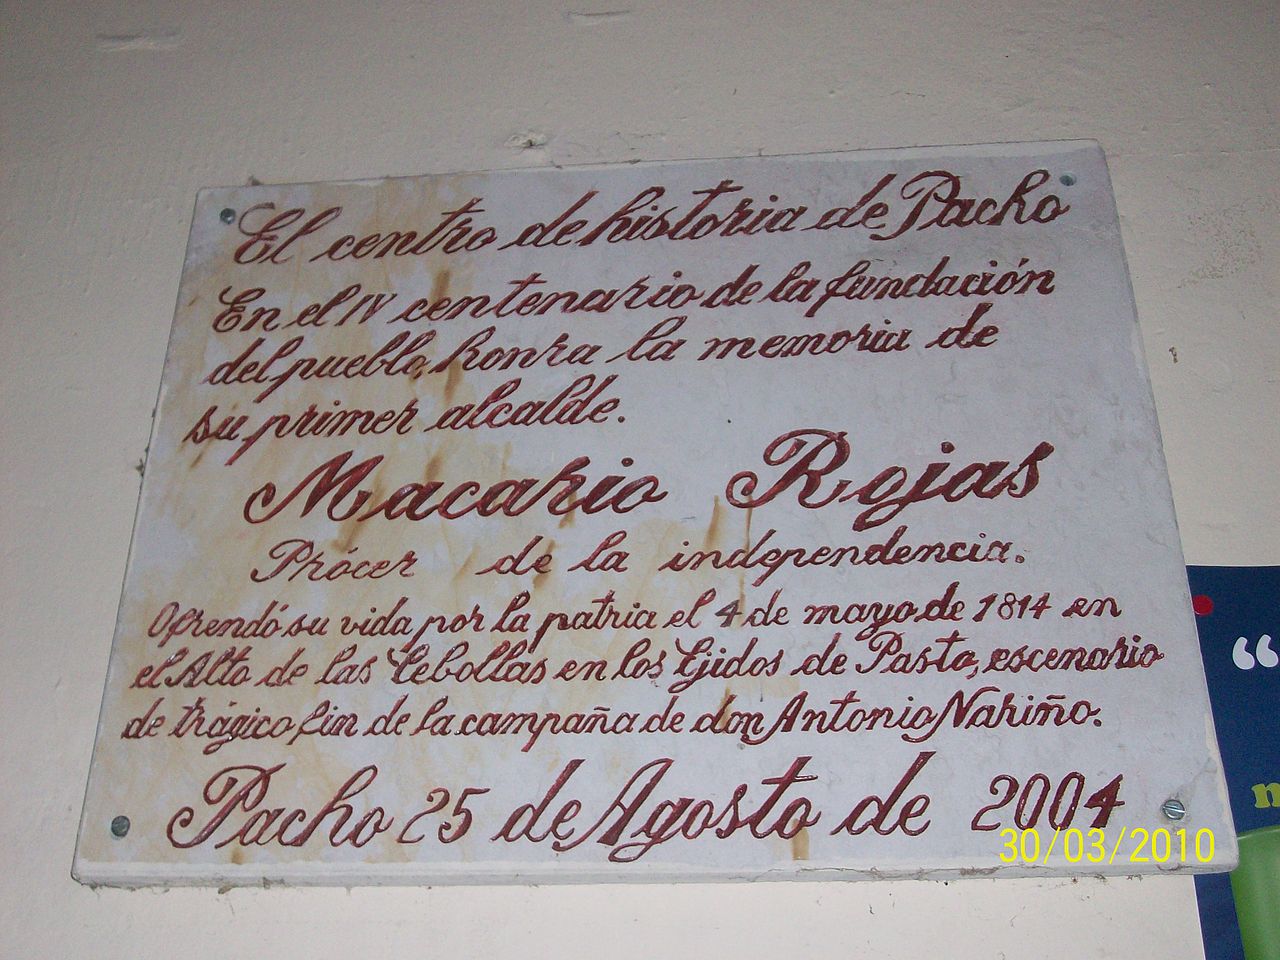 El centro de historia de Pacho
En el IV centenario de la fundación
del pueblo, honra la memoria de
su primer alcalde.
Macario Rojas
Prócer de la independencia.
Ofrendó su vida por la patria el 4 de mayo de 1814 en
el Alto de las Cebollas en los Ejidos de Pasto, escenario
de trágico fin de la campaña de don Antonio Nariño.
Pacho 25 de Agosto de 2004
30/03/2010
“
n